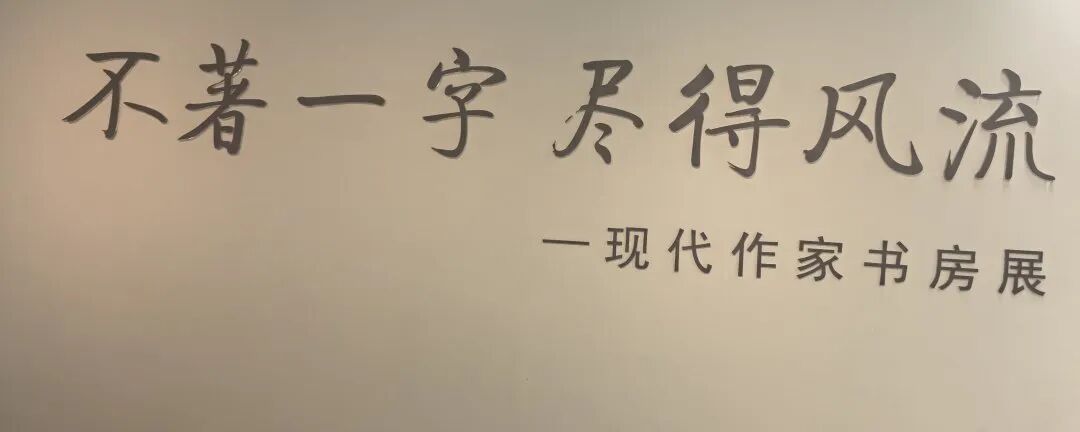 不著一字 尽得风流
—现代作家书房展